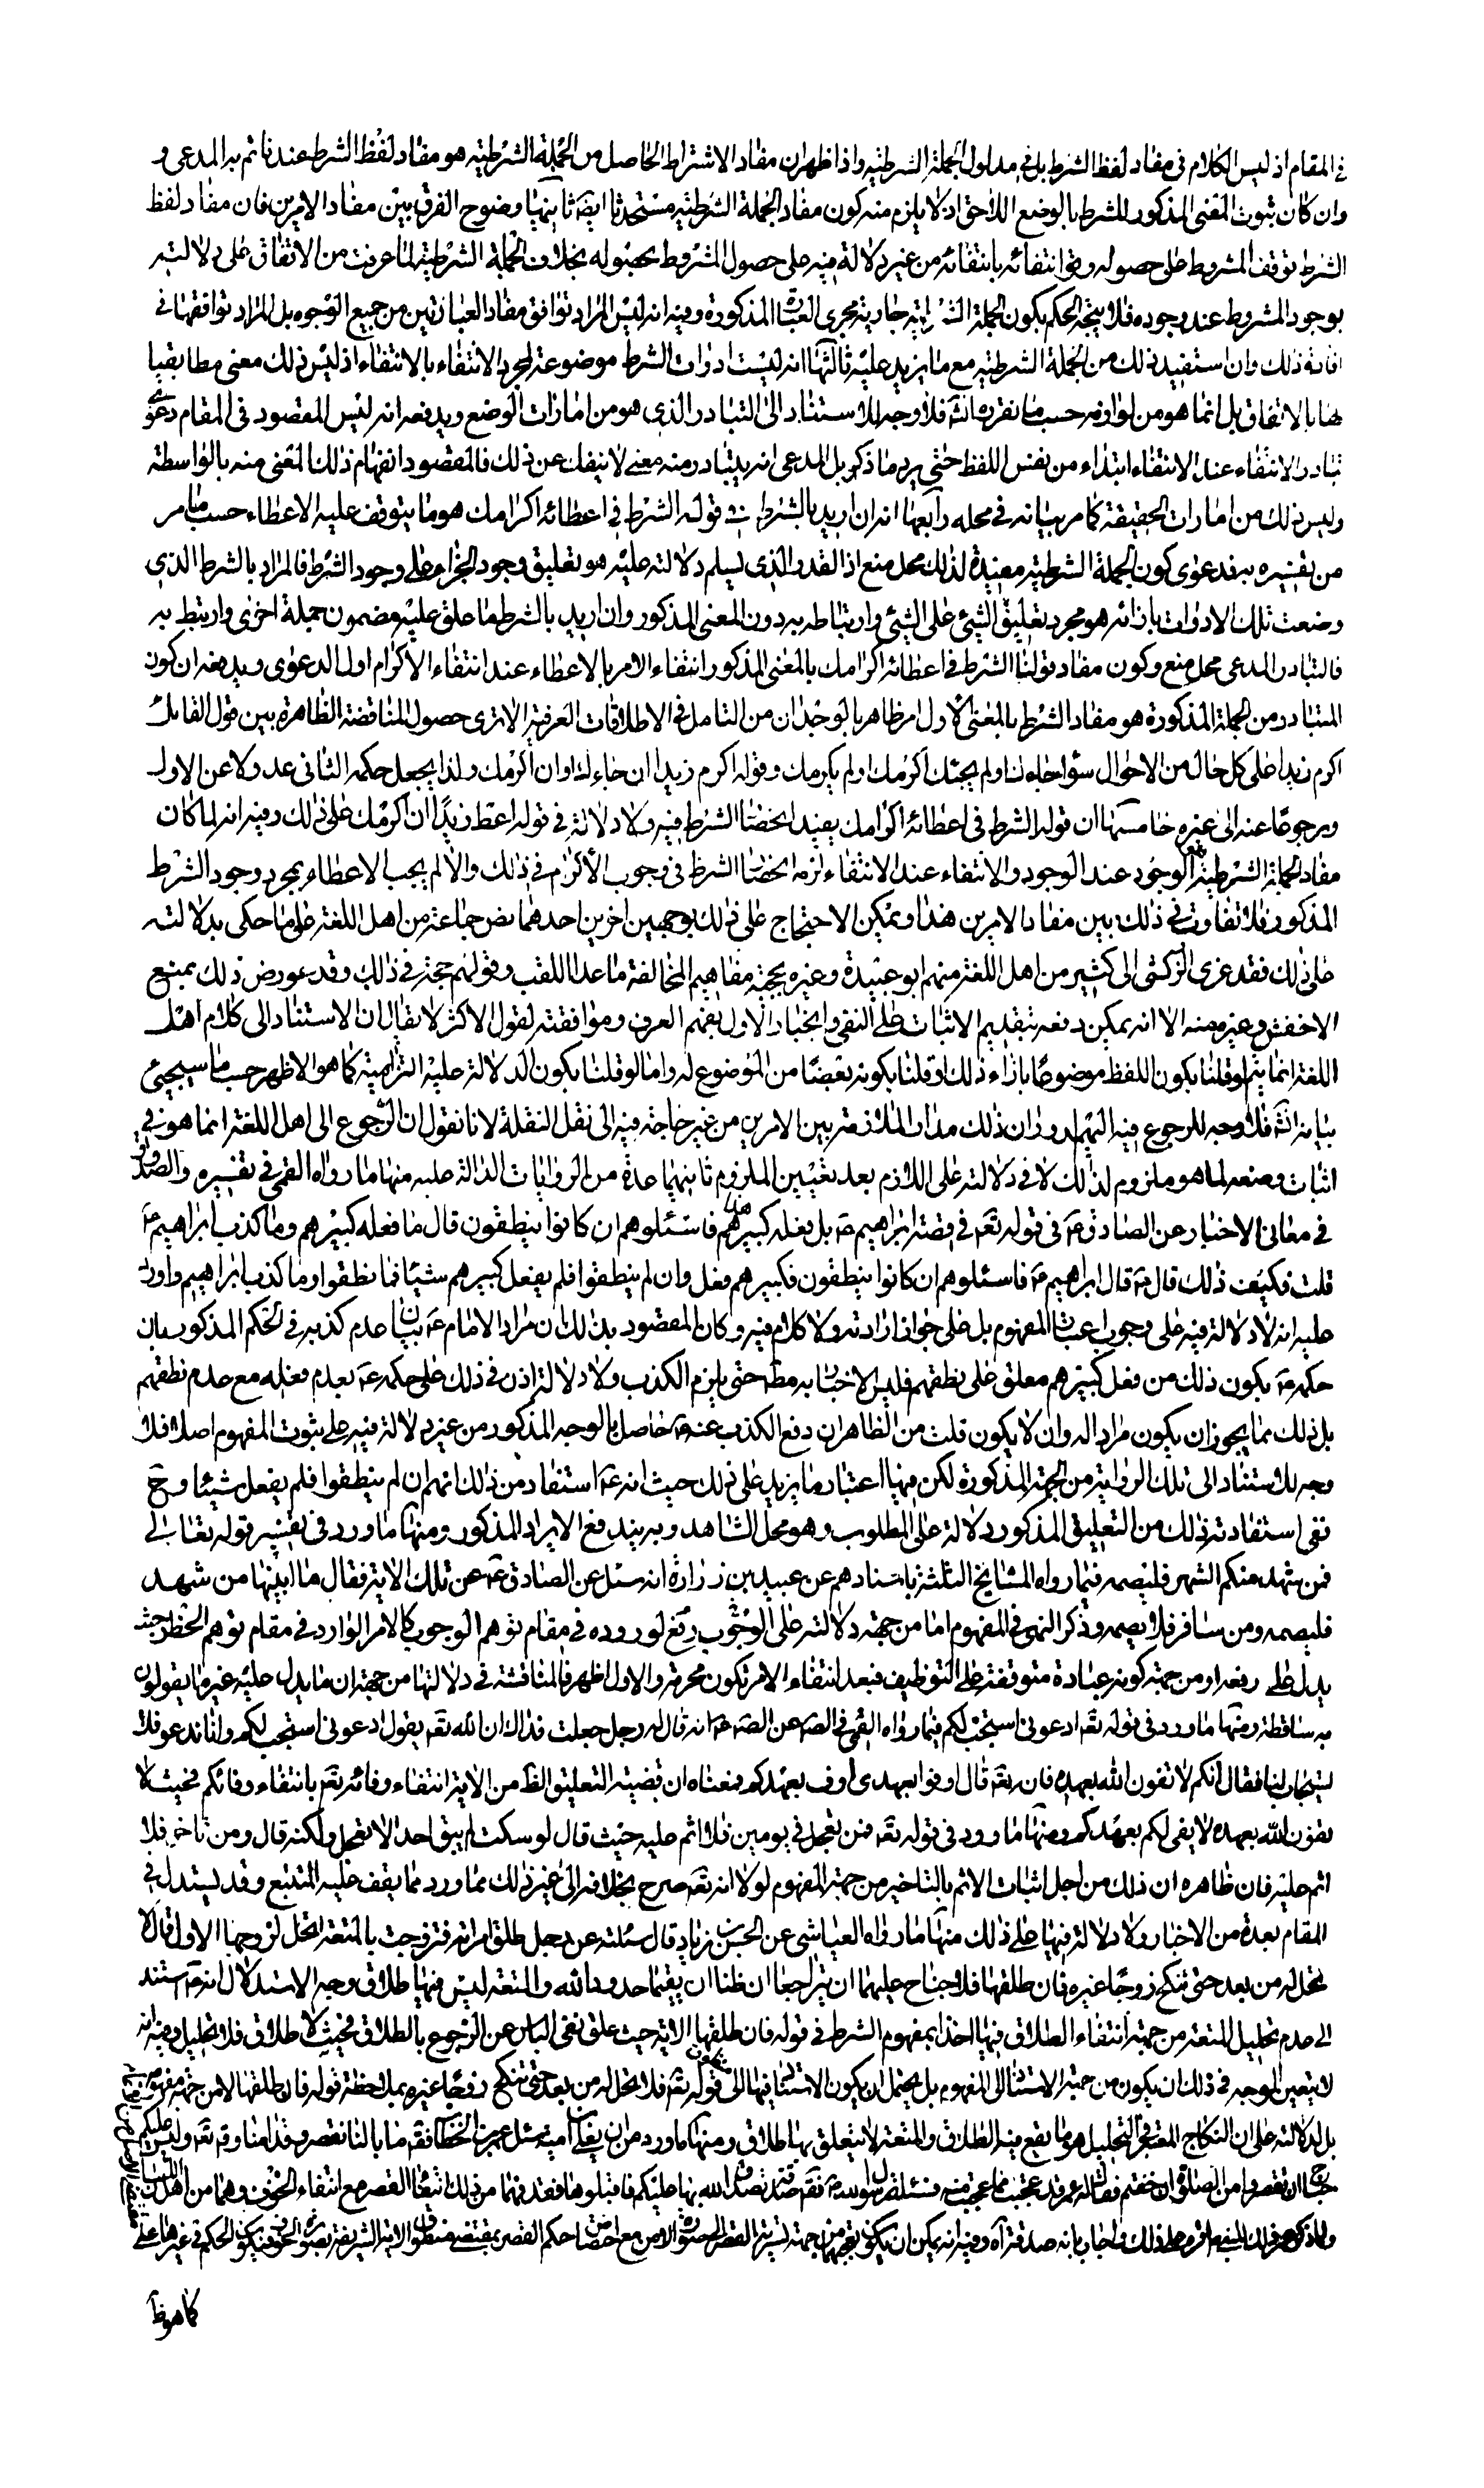 في المقام اذ ليس الكلام في مفاد لفظ الشرط بل في مدلول الجملة الشرطية واذا ظهر ان مفاد الاشتراط الحاصل من الجملة الشرطية هو مفاد لفظ الشرط عندنا ثم به المدعى و
وان كان ثبوت المعنى المذكور للشرط بالوضع اللاحق اذ لا يلزم منه كون مفاد الجملة الشرطية مستحدثا ايضا ثانيهما وضوح الفرق بين مفاد الامرين فان مفاد لفظ
الشرط توقف المشروط على حصوله وانتفائه بانتفائه من غير دلالة فيه على حصول المشروط بحصوله بخلاف الجملة الشرطية لما عرفت من الاتفاق على دلالته
بوجود المشروط عند وجوده فلا يتجه الحكم بكون الجملة الشرطية جارية مجرى العبارة المذكورة وفيه انه ليس المراد توافق مفاد العبارتين من جميع الوجوه بل المراد توافقهما في
افادة ذلك وان استفيد ذلك من الجملة الشرطية مع ما يزيد عليه ثالثها انه ليست ادوات الشرط موضوعة لمجرد الانتفاء بالانتفاء اذ ليس ذلك معنى مطابقيا
لها بالاتفاق بل انما هو من لوازمه حسب ما نقرره انش فلا وجه للاستناد الى التبادر الذي هو من امارات الوضع ويدفعه انه ليس المقصود في المقام دعوى
تبادر الانتفاء عند الانتفاء ابتداء من نفس اللفظ حتى يرد ما ذكر بل المدعى انه يتبادر منه معنى لا ينفك عن ذلك فالمقصود انفهام ذلك المعنى منه بالواسطة
وليس ذلك من امارات الحقيقة كما مر بيانه في محله رابعها انه ان اريد بالشرط في قوله الشرط في اعطائه اكرامك هو ما يتوقف عليه الاعطاء حسب ما مر
من تفسيره به فدعوى كون الجملة الشرطية مفيدة لذلك محل منع اذ القدر الذي يسلم دلالته عليه هو تعليق وجود الجزاء على وجود الشرط فالمراد بالشرط الذي
وضعت تلك الادوات بازائه هو مجرد تعليق الشيئ على الشيئ وارتباطه به دون المعنى المذكور وان اريد بالشرط ما علق عليه مضمون جملة اخرى وارتبط به
فالتبادر المدعى محل منع وكون مفاد قولنا الشرط في اعطائه اكرامك بالمعنى المذكور انتفاء الامر بالاعطاء عند انتفاء الاكرام اول الدعوى ويدفعه ان كون
المتبادر من الجملة المذكورة هو مفاد الشرط بالمعنى الاول امر ظاهر بالوجدان من التامل في الاطلاقات العرفية الا ترى حصول المناقضة الظاهرة بين قول القائل
اكرم زيدا على كل حال من الاحوال سواء جاءك او لم يجئك اكرمك او لم يكرمك وقوله اكرم زيدا ان جاءك او ان اكرمك ولذا يجعل حكمه الثاني عدولا عن الاول
ورجوعا عنه الى غيره خامسها ان قوله الشرط في اعطائه اكرامك يفيد انحصار الشرط فيه ولا دلالة في قوله اعط زيدا ان اكرمك على ذلك وفيه انه لما كان
مفاد الجملة الشرطية الوجود عند الوجود والانتفاء عند الانتفاء لزمه انحصار الشرط في وجوب الاكرام في ذلك والا لم يجب الاعطاء بمجرد وجود الشرط
المذكور فلا تفاوت في ذلك بين مفاد الامرين هذا ويمكن الاحتجاج على ذلك بوجهين اخرين احدهما نص جماعة من اهل اللغة على ما حكى بدلالته
على ذلك فقد عزى الزركشي الى كثير من اهل اللغة منهم ابو عبيدة وغيره بحجية مفاهيم المخالفة ما عدا اللقب وقولهم حجة في ذلك وقد عورض ذلك بمنع
الاخفش وغيره منه الا انه يمكن دفعه بتقديم الاثبات على النفي وانجبار الاول بفهم العرف وموافقته لقول الاكثر لا يقال ان الاستناد الى كلام اهل
اللغة انما يتم لو قلنا بكون اللفظ موضوعا بازاء ذلك او قلنا بكونه بعضا من الموضوع له واما لو قلنا بكون الدلالة عليه التزامية كما هو الاظهر حسب ما سيجيئ
بيانه انش فلا وجه للرجوع فيه اليهم لدوران ذلك مدار الملازمة بين الامرين من غير حاجة فيه الى نقل النقلة لانا نقول ان الرجوع الى اهل اللغة انما هو في
اثبات وضعه لما هو ملزوم لذلك لا في دلالته على اللازم بعد تعيين الملزوم ثانيهما عدة من الروايات الدالة عليه منها ما رواه القمي في تفسيره والصدوق
في معاني الاخبار عن الصادق ع في قوله تعم في قصة ابراهيم ع بل فعله كبيرهم هذا فاسئلوهم ان كانوا ينطقون قال ما فعله كبيرهم وما كذب ابراهيم ع
قلت فكيف ذلك قال ع قال ابراهيم ع فاسئلوهم ان كانوا ينطقون فكبيرهم فعل وان لم ينطقوا فلم يفعل كبيرهم شيئا فما نطقوا وما كذب ابراهيم واورد
عليه انه لا دلالة فيه على وجوب اعتبار المفهوم بل على جواز ارادته ولا كلام فيه وكان المقصود بذلك ان مراد الامام ع بيان عدم كذبه في الحكم المذكور بان
حكمه ع بكون ذلك من فعل كبيرهم معلق على نطقهم فليس الاخبار به مطم حتى يلزم الكذب ولا دلالة اذن في ذلك على حكمه ع بعدم فعله مع عدم نطقهم
بل ذلك مما يجوز ان يكون مرادا له وان لا يكون قلت من الظاهر ان دفع الكذب عنه ع حاصل بالوجه المذكور من غير دلالة فيه على ثبوت المفهوم اصلا فلا
وجه للاستناد الى تلك الرواية من الجهة المذكورة لكن فيها اعتبار ما يزيد على ذلك حيث انه ع استفاد من ذلك انهم ان لم ينطقوا فلم يفعل شيئا وح
ففي استفادته ذلك من التعليق المذكور دلالة على المطلوب وهو محل الشاهد وبه يندفع الايراد المذكور ومنها ما ورد في تفسير قوله تعالى
فمن شهد منكم الشهر فليصمه فيما رواه المشايخ الثلثة باسنادهم عن عبيد بن زرارة انه سئل عن الصادق ع عن تلك الاية فقال ما ابينها من شهد
فليصمه ومن سافر فلا يصمه وذكر النهي في المفهوم اما من جهة دلالته على الوجوب رفع لوروده في مقام توهم الوجوب كالامر الوارد في مقام توهم الحظر حيث
يدل على رفعه او من جهة كونه عبادة متوقفة على التوظيف فبعد انتفاء الامر تكون محرمة والاول اظهر فالمناقشة في دلالتها من جهة ان ما يدل عليه غير ما يقولون
به ساقطة ومنها ما ورد في قوله تعم ادعوني استجب لكم فيما رواه القمي في الصم عن الصم ع انه قال له رجل جعلت فداك ان الله تعم يقول ادعوني استجب لكم وانا ندعو فلا
يستجاب لنا فقال انكم لا تفون الله بعهده فانه تعم قال اوفوا بعهدي اوف بعهدكم فمعناه ان قضية التعليق الظ من الاية انتفاء وفائه تعم بانتفاء وفائكم فحيث لا
تفون الله بعهده لا يفي لكم بعهدكم ومنها ما ورد في قوله تعم فمن تعجل في يومين فلا اثم عليه حيث قال لو سكت لم يبق احد الا تعجل ولكنه قال ومن تاخر فلا
اثم عليه فان ظاهره ان ذلك من اجل اثبات الاثم بالتاخير من جهة المفهوم لولا انه تعم صرح بخلافه الى غير ذلك مما ورد مما يقف عليه المتتبع وقد يستدل في
المقام بعدة من الاخبار ولا دلالة فيها على ذلك منها ما رواه العياشي عن الحسن بن زياد قال سئلته عن رجل طلق امراته فتزوجت بالمتعة اتحل لزوجها الاول قال لا
تحل له من بعد حتى تنكح زوجا غيره فان طلقها فلا جناح عليهما ان يتراجعا ان ظنا ان يقيما حدود الله والمتعة ليس فيها طلاق وجه الاستدلال انه ع استند
الى عدم تحليل المتعة من جهة انتفاء الطلاق فيها اخذا بمفهوم الشرط في قوله فان طلقها الاية حيث علق نفي الباس عن الرجوع بالطلاق فحيث لا طلاق فلا تحليل وفيه انه
لا يتعين الوجه في ذلك ان يكون من جهة الاستناد الى المفهوم بل يحتمل ان يكون الاستناد فيها الى قوله تعم فلا تحل له من بعد حتى تنكح زوجا غيره بملاحظة قوله فان طلقها لا من جهة مفهومه
بل لدلالته على ان النكاح المعتبر في التحليل هو ما يقع فيه الطلاق والمتعة لا يتعلق بها طلاق ومنها ما ورد من ان يعلى بن امية سئل عمر بن الخطاب فقم ما بالنا نقصر وقد امنا وقد قم تعم وليس عليكم
جناح ان تقصروا من الصلوة ان خفتم فقال له عمر قد عجبت مما عجبت منه فسئلت رسول الله ص فقم صدقة تصدق الله بها عليكم فاقبلوها ففهما من ذلك انتفاء القصر مع انتفاء الخوف وهما من اهل اللسان
كما هو ظ